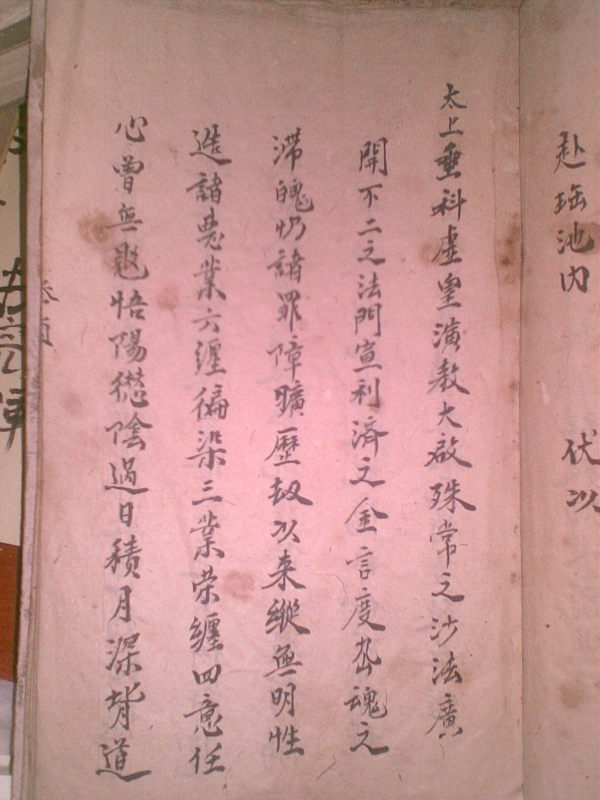 赴瑶池内
伏以
太上垂科虚皇演教大啟殊常之沙法廣
開不二之法門宣利濟之金言度孤魂之
滯魄仍諸罪障曠歷劫以来縱無明性
造諸惡業六纏徧染三業荣纏四意任
心曾無退悟陽愆陰過日積月深背道